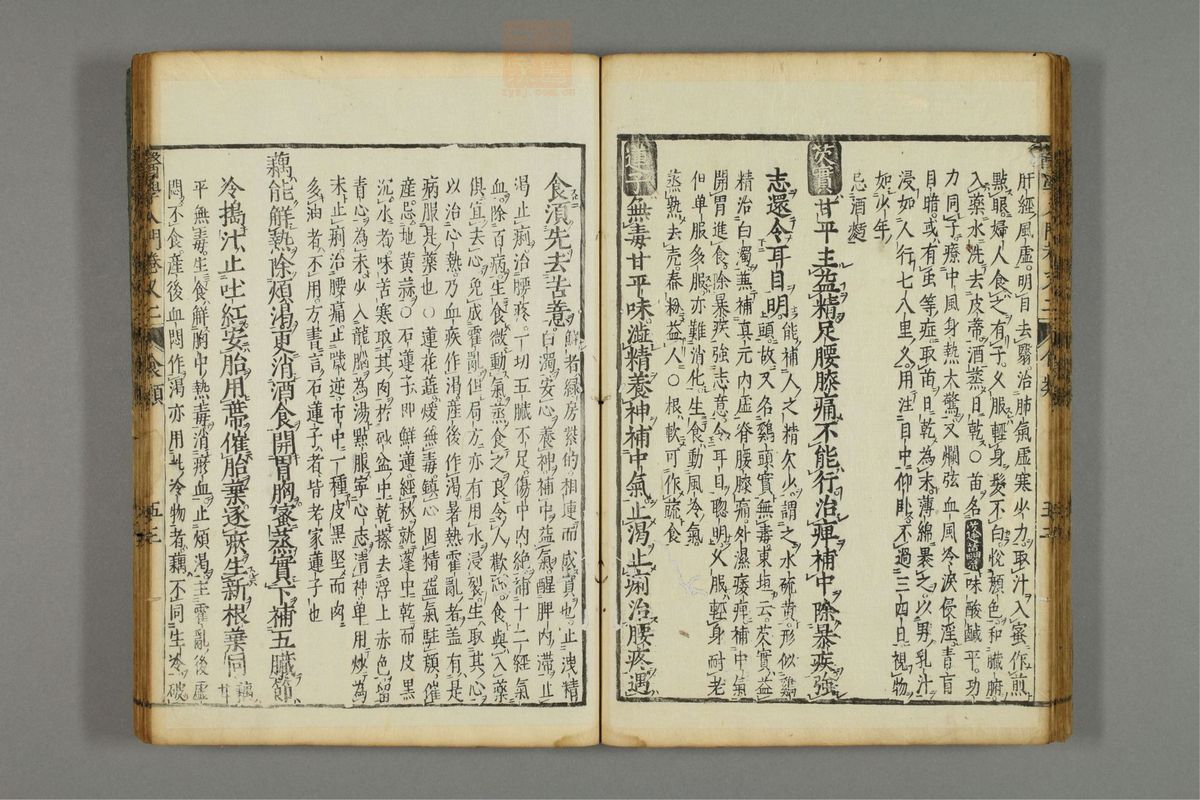 肝經風虛明目去翳治肺氣虛寒少力取汁入蜜作煎
點眼婦人食之有子久服輕身髮不白悅顏色和臟腑
入藥水洗去皮蒂酒蒸日乾○苗名蓬蘽味酸鹹平功
力同子療中風身熱大驚又爛弦血風冷淚侵淫青盲
目暗或有虫等症取苗日乾為末薄綿裹之以男乳汁
浸如人行七八里久用注目中仰臥不過三四日視物
如少年
忌酒麪
芡實甘平主益精足腰膝痛不能行治痺補中除暴疾強
志還令耳目明能補人之精欠少謂之水硫黃形似雞
頭故又名鷄頭實無毒東垣云芡實益
精治白濁兼補真元內虛脊腰膝痛外濕痿痺補中氣
開胃進食除暴疾強志意令耳目聰明久服輕身耐老
但單服多服亦難消化生食動風冷氣
蒸熟去壳舂粉益人○根軟可作蔬食
蓮子無毒甘平味澁精養神補中氣止渴止痢治腰疼遇
食須先去苦意鮮者緑房紫的相連而成實也止洩精
白濁安心養神補中益氣醒脾內滯止
渴止痢治腰疼一切五臟不足傷中內絕補十二經氣
血除百病生食微動氣蒸食之良令人歡心食與入藥
俱宜去心免成霍亂但局方亦有用水浸裂生取其心
以治心熱乃血疾作渴產後作渴暑熱霍亂者蓋有是
病服是藥也○蓮花蕋煖無毒鎮心固精益氣駐顏催
產忌地黃蒜○石蓮子即鮮蓮經秋就蓬中乾而皮黑
沉水者味苦寒取其肉於砂盆中乾擦去浮上赤色留
青心為末少入龍腦為湯點服寧心志清神単用炒為
末止痢治腰痛止噦逆市中一種皮黑堅而肉
多油者不用方書言石蓮子者皆老家蓮子也
藕能解熱除煩渴更消酒食開胃胸蜜蒸實下補五臟節
冷搗汁止吐紅安胎用蒂催胎葉逐瘀生新根葉同藕甘
平無毒生食解胸中熱毒消瘀血止煩渴主霍亂後虛
悶不食產後血悶作渴亦用此冷物者藕不同生冷破
醫學入門卷又二 食類 五三